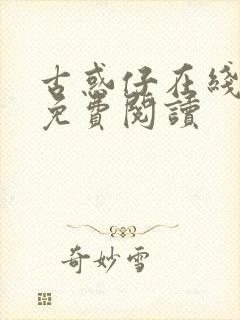 古惑仔在綫
免費閱讀
奇妙雪